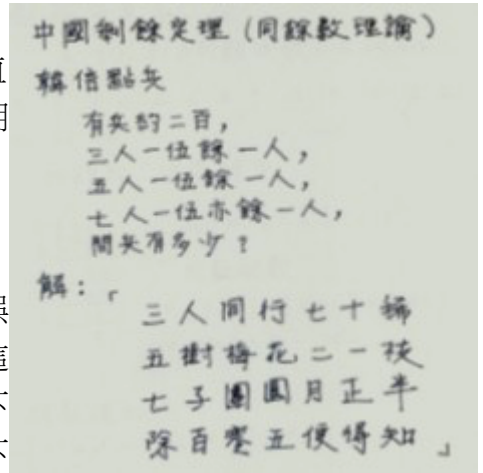 中國剩餘定理 (同餘數理論)
韓信點兵
有兵約二百，
三人一伍餘一人，
五人一伍餘一人，
七人一伍亦餘一人，
問兵有多少？
解：「
三人同行七十稀
五樹梅花二一枝
七子團圓月正半
除百零五便得知」